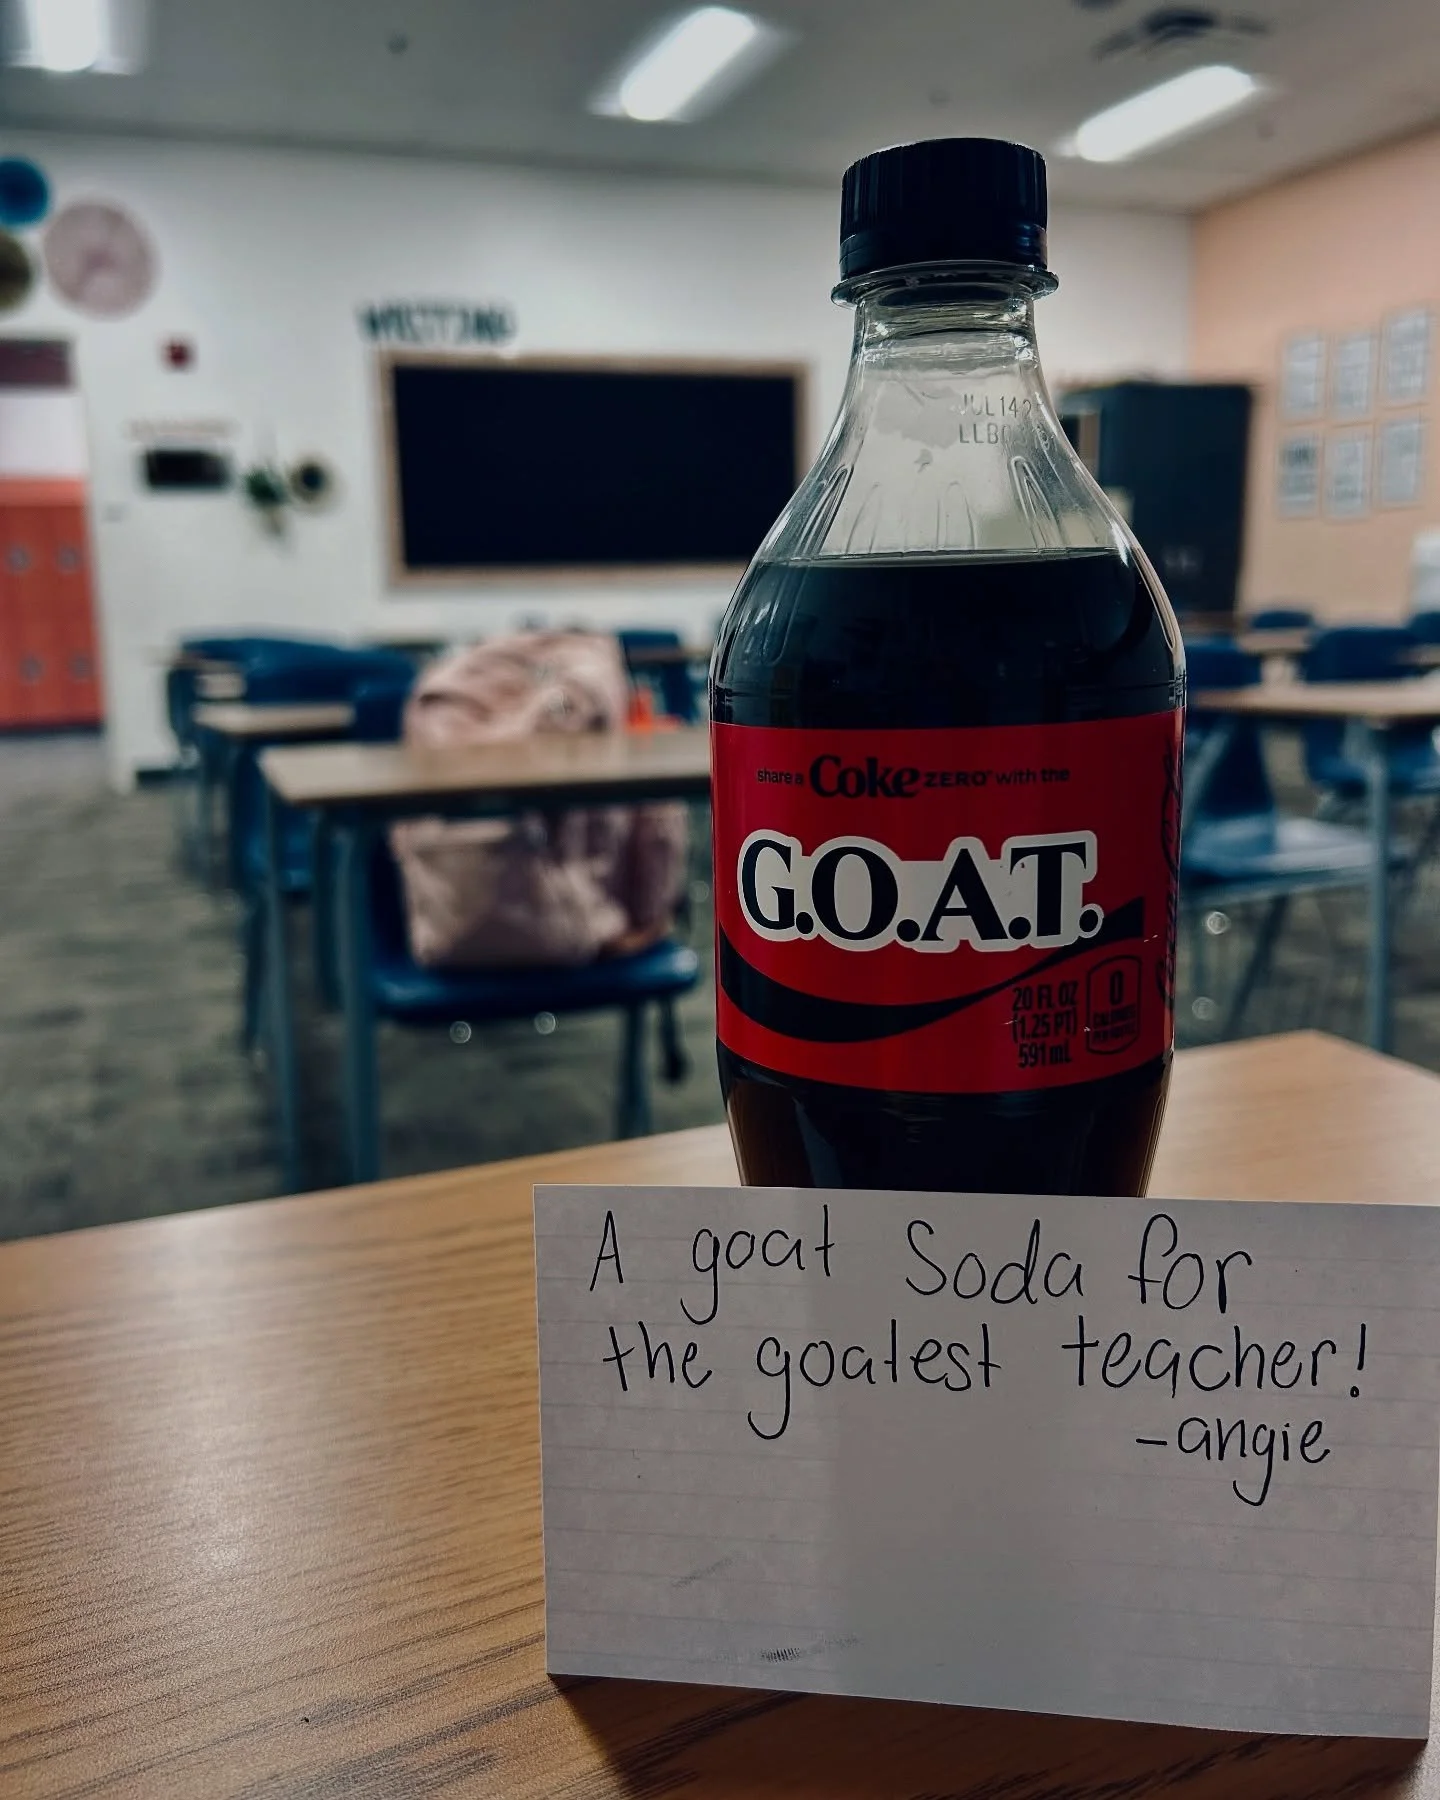 WRITING
JUL142
share a Coke ZERO™ with the
G.O.A.T.
20 FL OZ
(1.25 PT)
591 mL
0
CALORIES
PER BOTTLE
A goat Soda for
the goatest teacher!
-angie